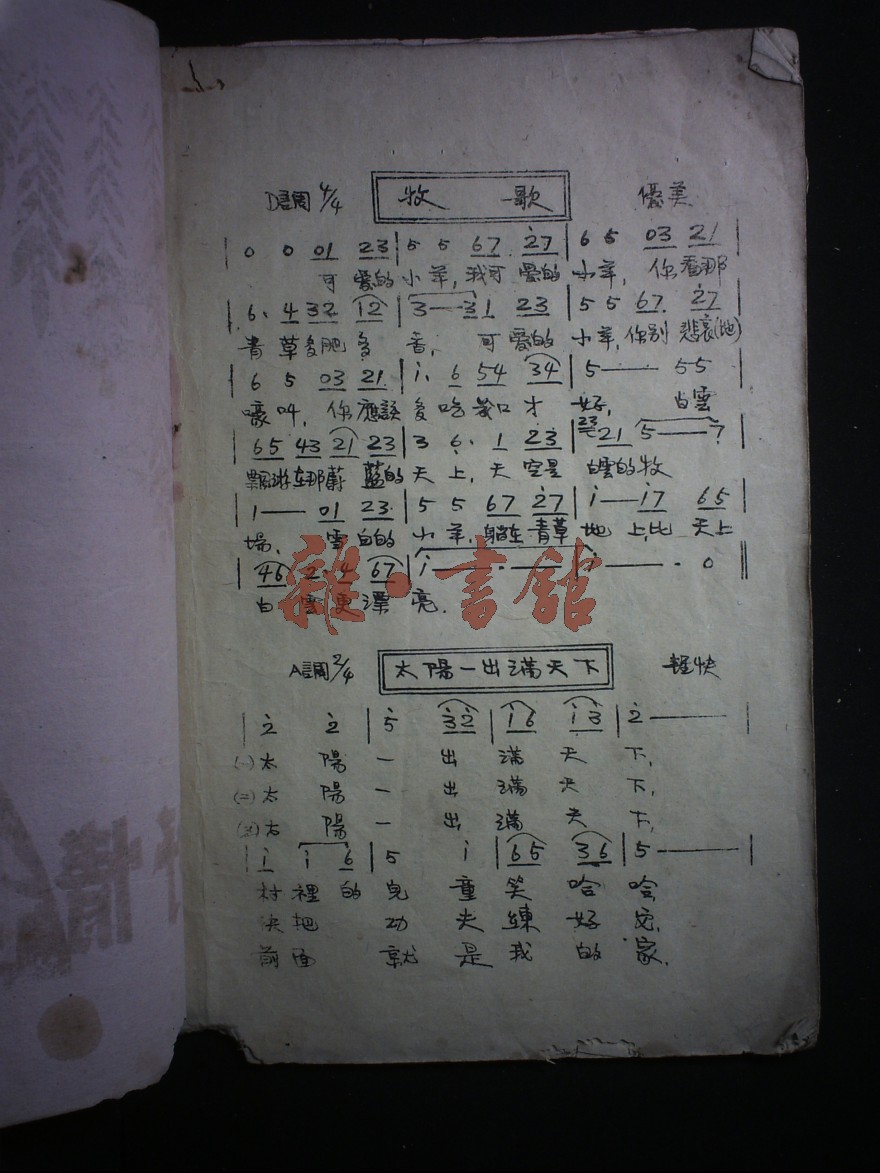 D調 4/4 牧 歌 優美
| 0 0 01 23 | 5 5 67 2̇7 | 6 5 03 21 |
可 愛的 小 羊, 我可 愛的 小 羊, 你 看那
6. 4 32 12 | 3 — 31 23 | 5 5 67 2̇7
青 草多肥 多 香, 可 愛的 小 羊, 你別 悲哀(地)
| 6 5 03 21 | i. 6 54 34 | 5 — 55 |
嚎 叫, 你 應該 多 吃 幾口 才 好, 白雲
| 65 43 21 23 | 3 6. 1 23 | 21 5 — ?
飄游在那蔚 藍的 天 上, 天 空是 白雲的牧
| 1 — 01 23 | 5 5 67 2̇7 | i — i7 65
場, 雪 白的 小 羊, 躺在 青草 地 上,比 天上
| 46 2. 4 67 | i — — — 0 ||
白 雲 更 漂 亮.
雜·書館
A調 2/4 太陽一出滿天下 輕快
| 2̇ 2̇ | 5̇ 3̇2̇ | i6 i3̇ | 2̇ — |
(一) 太 陽 一 出 滿 天 下,
(二) 太 陽 一 出 滿 天 下,
(三) 太 陽 一 出 滿 天 下,
| i i 6 | 5 i | 65 36 | 5 — |
村 裡 的 兒 童 笑 哈 哈,
決 把 功 夫 練 好 它,
前 面 就 是 我 的 家,